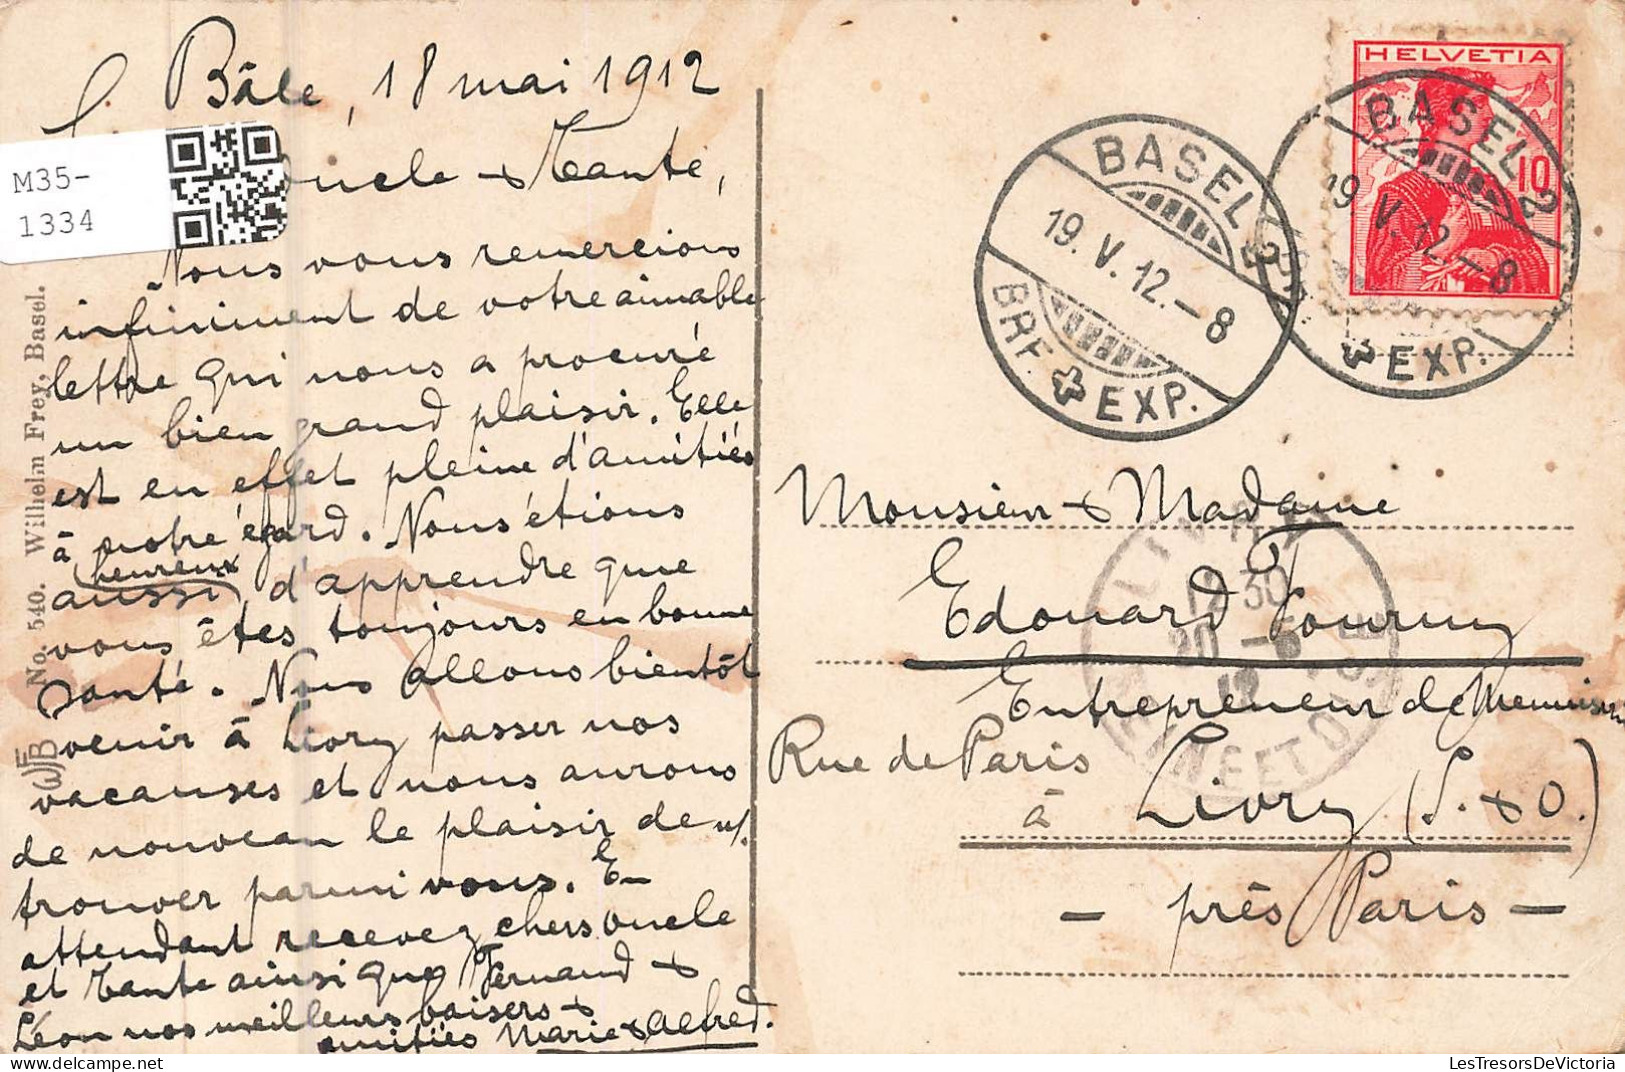 Bâle, 18 mai 1912
M35-
1334
oncle & Tante,
Nous vous remercions
infiniment de votre aimable
lettre qui nous a procuré
un bien grand plaisir. Elle
est en effet pleine d'amitiés
à notre égard. Nous étions
heureux
aussi d'apprendre que
vous êtes toujours en bonne
santé. Nous allons bientôt
venir à Livry passer nos
vacances et nous aurons
de nouveau le plaisir de n/.
trouver parmi vous. En
attendant recevez chers oncle
et Tante ainsi que Fernand &
Léon nos meilleurs baisers &
amitiés Marie & Alfred.
WFB No. 540. Wilhelm Frey, Basel.
HELVETIA
10
BASEL 2
19.V.12.-8
BRF. EXP.
BASEL 2
19.V.12.-8
EXP.
Monsieur & Madame
Edouard Fourny
Entrepreneur de Menuiserie
Rue de Paris
à Livry (S. & O.)
- près Paris -
LIVRY
12 30
20 -5
12
SEINE ET OISE
LesTresorsDeVictoria